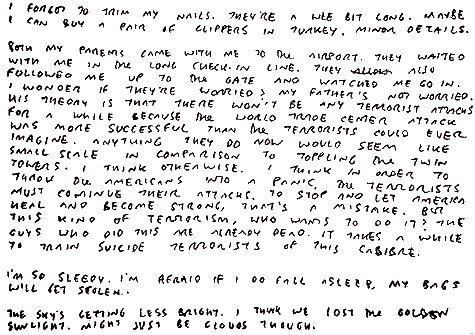 I FORGOT TO TRIM MY NAILS. THEY'RE A WEE BIT LONG. MAYBE
I CAN BUY A PAIR OF CLIPPERS IN TURKEY. MINOR DETAILS.
BOTH MY PARENTS CAME WITH ME TO THE AIRPORT. THEY WAITED
WITH ME IN THE LONG CHECK-IN LINE. THEY ALSO
FOLLOWED ME UP TO THE GATE AND WATCHED ME GO IN.
I WONDER IF THEY'RE WORRIED? MY FATHER'S NOT WORRIED.
HIS THEORY IS THAT THERE WON'T BE ANY TERRORIST ATTACKS
FOR A WHILE BECAUSE THE WORLD TRADE CENTER ATTACK
WAS MORE SUCCESSFUL THAN THE TERRORISTS COULD EVER
IMAGINE. ANYTHING THEY DO NOW WOULD SEEM LIKE
SMALL SCALE IN COMPARISON TO TOPPLING THE TWIN
TOWERS. I THINK OTHERWISE. I THINK IN ORDER TO
THROW THE AMERICANS INTO A PANIC, THE TERRORISTS
MUST CONTINUE THEIR ATTACKS. TO STOP AND LET AMERICA
HEAL AND BECOME STRONG, THAT'S A MISTAKE. BUT
THIS KIND OF TERRORISM, WHO WANTS TO DO IT? THE
GUYS WHO DID THIS ARE ALREADY DEAD. IT TAKES A WHILE
TO TRAIN SUICIDE TERRORISTS OF THIS CALIBRE.
I'M SO SLEEPY. I'M AFRAID IF I DO FALL ASLEEP, MY BAGS
WILL GET STOLEN.
THE SKY'S GETTING LESS BRIGHT. I THINK WE LOST THE GOLDEN
SUNLIGHT. MIGHT JUST BE CLOUDS THOUGH.